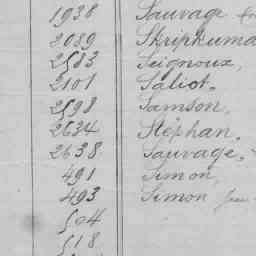 1938 Sauvage
2089 Skripkuma
2583 Seignoux,
2101 Saliot.
2598 Samson,
2634 Stéphan.
2638 Sauvage.
491 Simon,
493 Simon
504
518